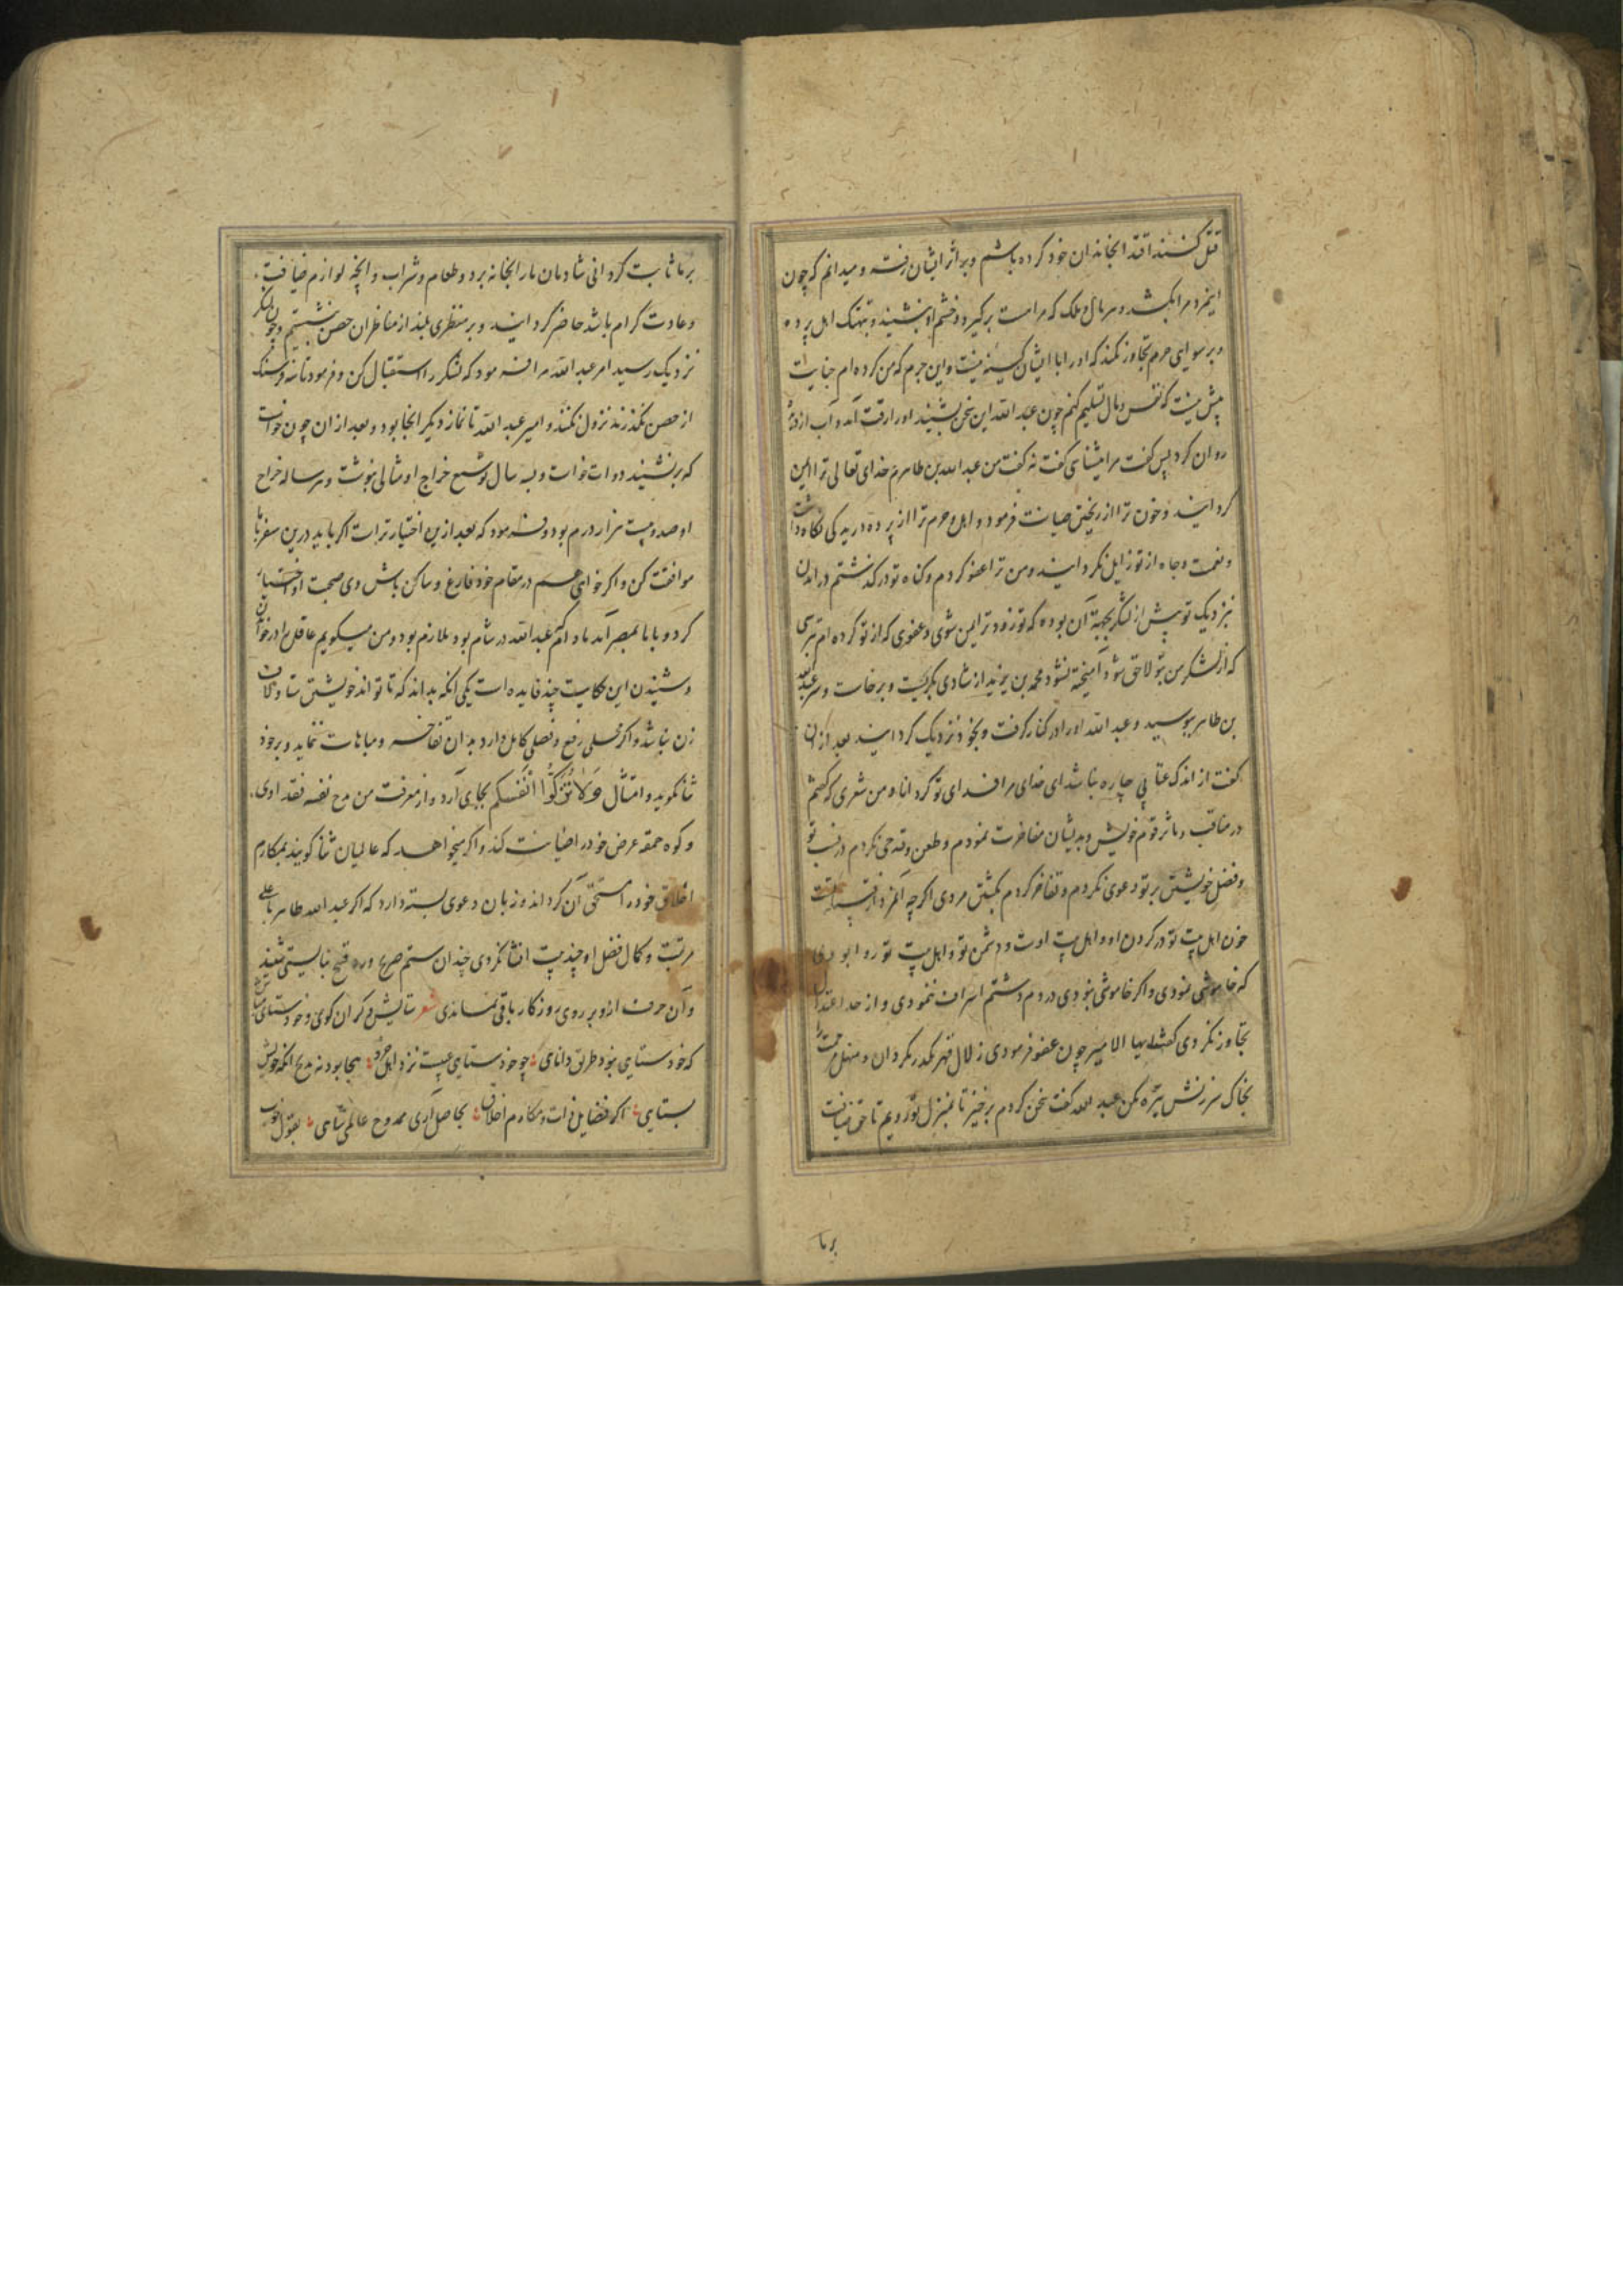 قتل کنند اقتدا بخاندان خود کرده باشم و بر اثر ایشان رفته و میدانم که چون
اینمرد مرا بکشد و هر مال و ملک که مراست برگیرد و خشم او بنشیند و بتهتک اهل پرده
و برسوایی حرم تجاوز نکند که او را با ایشان کینه نیست و این جرم که من کرده‌ام جنایت
پیش نیست که نفس و مال تسلیم کنم چون عبد الله این سخن بشنید او را رقت آمد و آب از دیده
روان کرد پس گفت مرا میشناسی گفت نه گفت من عبد الله بن طاهرم خدای تعالی ترا ایمن
گردانید و خون ترا از ریختن صیانت فرمود و اهل و حرم ترا از پرده دریدگی نگاه داشت
و نعمت و جاه از تو زایل نگردانید و من ترا عفو کردم و گناه تو درگذشتم در آمدن
بنزدیک تو پیش از لشکر بجهة آن بوده که تو زودتر ایمن شوی و عفوی که از تو کرده‌ام
که از لشکر من بتو لاحق شود آمیخته نشود محمد بن یزید از شادی بگریست و برخاست و سر عبد الله
بن طاهر ببوسید و عبد الله او را در کنار گرفت و بخود نزدیک گردانید بعد از ان
گفت از اندک عتابی چاره نباشد ای خدای مرا فدای تو گرداناد من شعری که گفتم
در مناقب و مآثر قوم خویش و بدیشان مفاخرت نمودم و طعن و قدحی نکردم در نسب تو
و فضل خویشتن بر تو دعوی نکردم و تفاخر کردم بکشتن مردی اگرچه آنمرد از قبیله تست
خون اهل بیت تو در گردن او و اهل بیت اوست و دشمن تو و اهل بیت تو روا بودی
که خاموشی نمودی و اگر خاموشی نبودی در ذم و شتم اسراف ننمودی و از حد اعتدال
تجاوز نکردی گفتم ایها الامیر چون عفو فرمودی زلال قهر مکدر مگردان و منهل
بخاک سرزنش تیره مکن عبد الله گفت سخن کردم برخیز تا بمنزل تو رویم تا حق ضیافت
برما
برما ثابت گردانی شادمان ما را بخانه برد و طعام و شراب و آنچه لوازم ضیافت
و عادت کرام باشد حاضر گردانید و بر منظری بلند از مناظر آن حصن بنشستیم و چون لشکر
نزدیک رسید امیر عبد الله مرا فرمود که لشکر را استقبال کن و فرمود تا سه فرسنگ
از حصن نگذرند نزول نکنند و امیر عبد الله تا نماز دیگر آنجا بود و بعد از ان چون خواست
که برنشیند دوات خواست و بسه سال توسیع خراج او مثالی بنوشت و هر ساله خراج
او صد و بیست هزار درم بود و فرمود که بعد ازین اختیار تراست اگر باید درین سفر با ما
موافقت کن و اگر خواهی هم در مقام خود فارغ و ساکن باش وی صحبت او اختیار
کرد و با ما بمصر آمد مادام که عبد الله در شام بود ملازم بود و من میگویم عاقل را در خواندن
و شنیدن این حکایت چند فایده است یکی انکه بداند که تا تواند خویشتن ستا و لاف
زن نباشد و اگر محلی رفیع و فضلی کامل دارد بدان تفاخر و مباهات ننماید و بر خود
ثنا نگوید و امتثال فَلَا تُزَكُّوا أَنْفُسَكُم بجای آرد و از معرفت من مدح نفسه فقد اودی
و کوه حمقه عرض خود را صیانت کند و اگر میخواهد که عالمیان ثنا گویند بمکارم
اخلاق خود را مستحق آن گرداند و زبان دعوی بسته دارد که اگر عبد الله طاهر با علو
مرتبت و کمال فضل او چند بیت انشا نکردی چندان ستم صریح و رد قبیح نبایستی شنید
و آن حرف از و بر روی روزگار باقی نماندی شعر ستایش دگران گوی و خود ستای مباش
که خود ستایی نبود طریق دانایی چو خود ستایی عیبست نزد اهل خرد هجا بود نه مدح انکه خویش
بستایی اگر فضایل ذات و مکارم اخلاق بحاصل آری ممدوح عالمی شایی بقول خوب